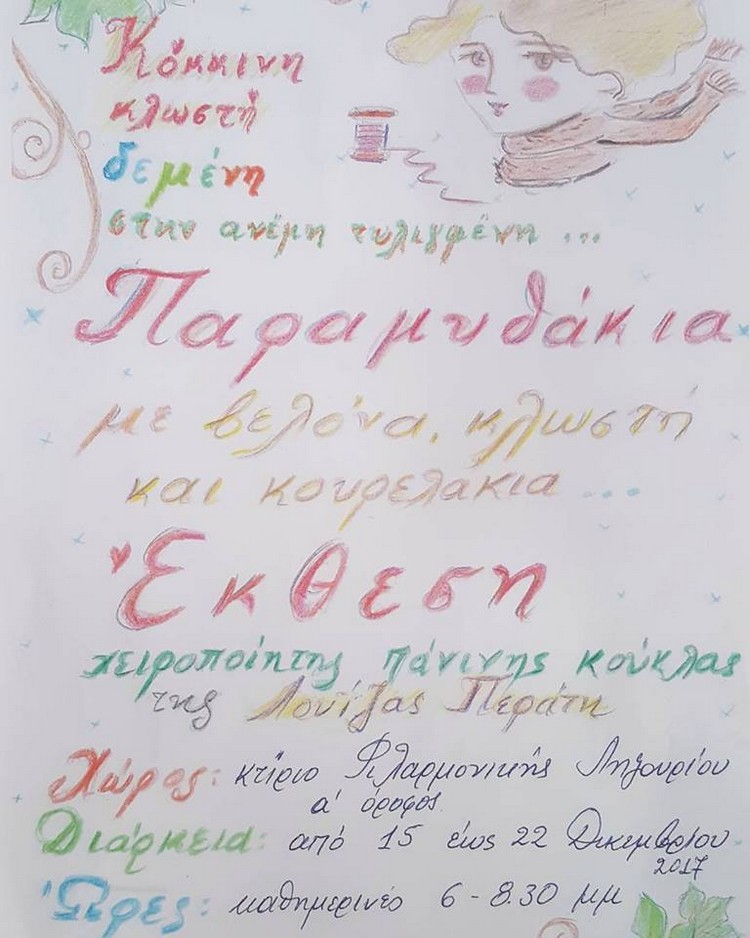 Κόκκινη
κλωστή
δεμένη
στην ανέμη τυλιγμένη ...
Παραμυθάκια
με βελόνα, κλωστή
και κουρελάκια ...
Έκθεση
χειροποίητης πάνινης κούκλας
της Λουίζας Περάτη
Χώρος: κτίριο Φιλαρμονικής Ληξουρίου
α' όροφος
Διάρκεια: από 15 έως 22 Δεκεμβρίου
2017
Ώρες: καθημερινές 6 - 8.30 μμ